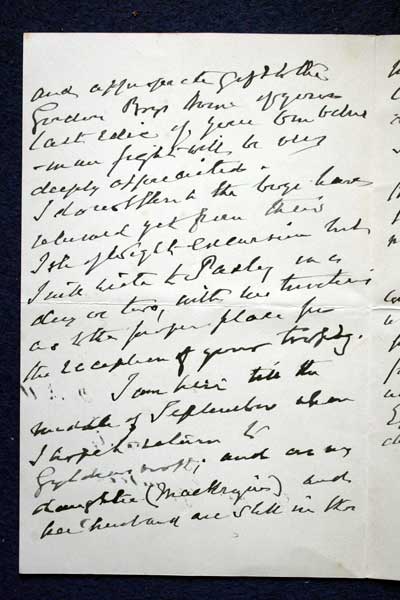 and appropriate gift to the
Gordon Boys Home of your
last relic of your
-man fight will be very
deeply appreciated.
I do not think the boys have
returned yet from their
Isle of Wight excursion but
I will write to Paxley in a
day or two, with his
as to the proper place for
the reception of your trophy.
I am here till the
middle of September when
I hope to return to
and as my
daughter ( ) and
her husband are still in the